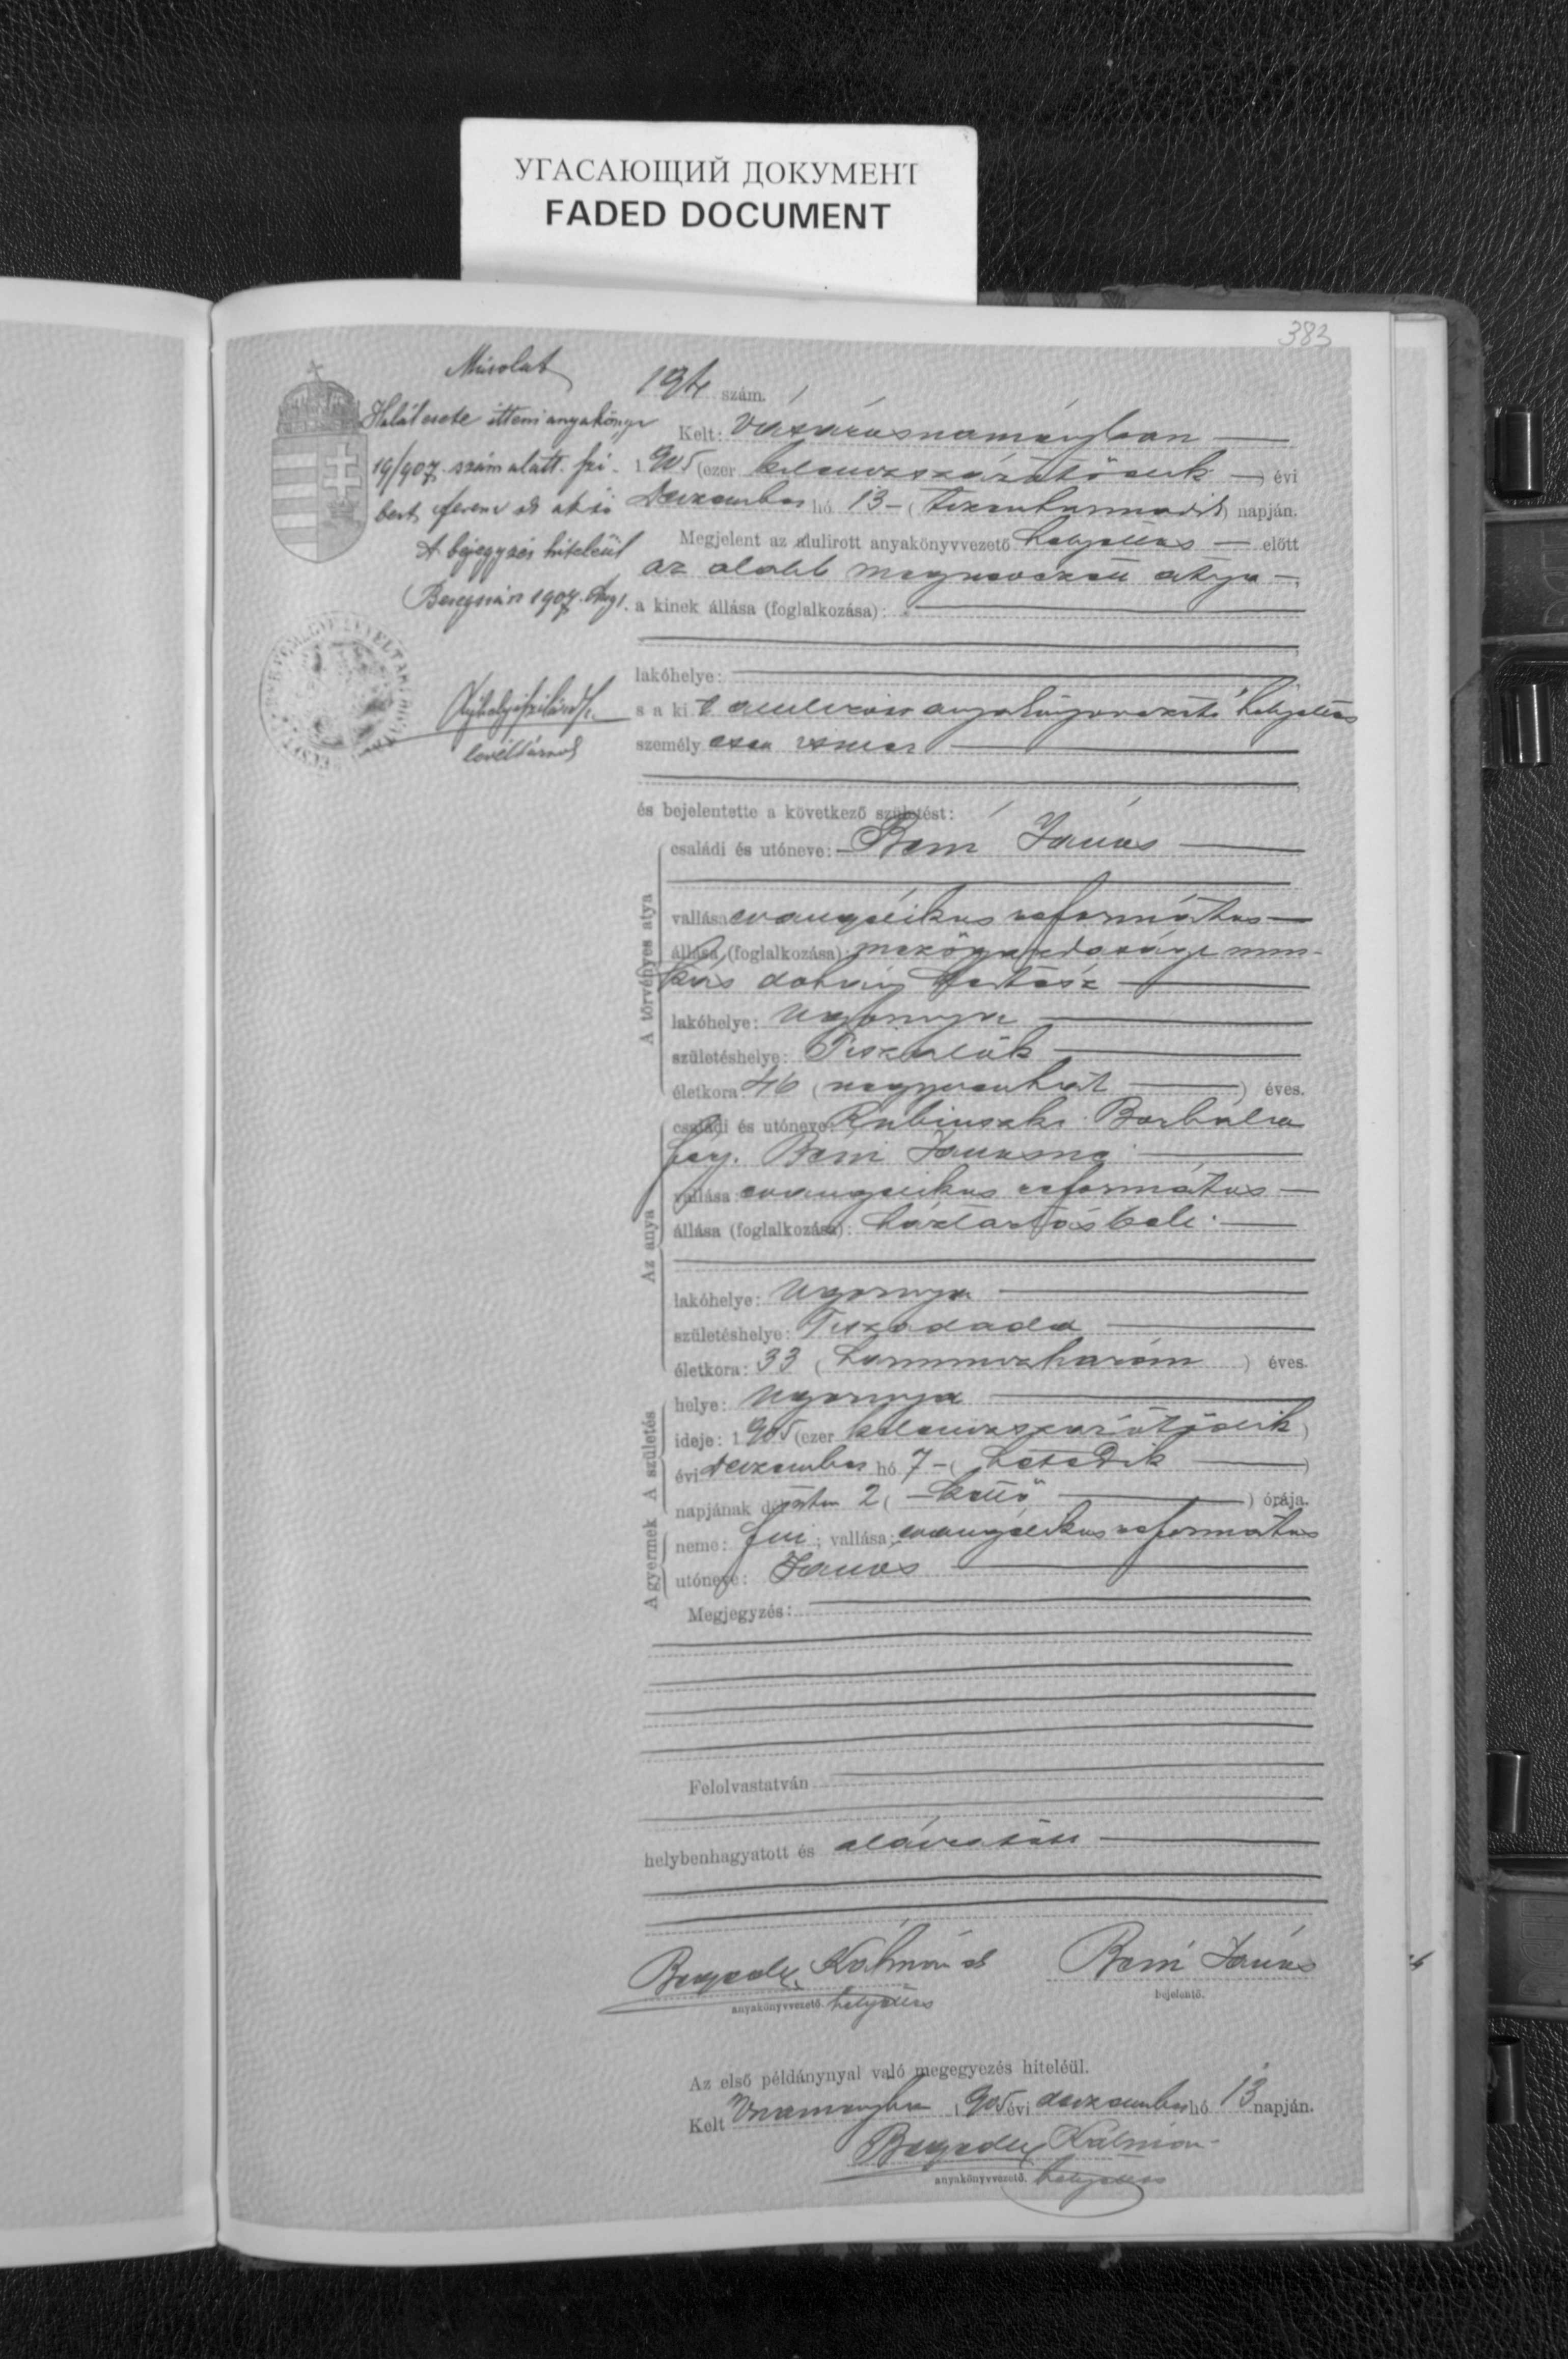 УГАСАЮЩИЙ ДОКУМЕНТ
FADED DOCUMENT
383
Másolat
Halálesete itteni anyakönyv
19/907 szám alatt.
A bejegyzés hiteleül
Beregszász 1907. Aug 1.
levéltárnok
194 szám.
Kelt: Vásárosnaményban
1905 (ezer kilencszázötödik) évi
Deczember hó 13 (tizenharmadik) napján.
Megjelent az alulirott anyakönyvvezető helyettes előtt
az alább megnevezett atya
a kinek állása (foglalkozása):
lakóhelye:
s a ki t anyakönyvvezető helyettes
személyesen ismer
és bejelentette a következő születést:
A törvényes atya
családi és utóneve: János
vallása evangélikus református
állása (foglalkozása): mezőgazdasági mun-
kás dohány kertész
lakóhelye: Ugornya
születéshelye: Tiszalök
életkora: 46 (negyvenhat) éves.
Az anya
családi és utóneve: Rubinszki Borbála
férj. Jánosné
vallása: evangélikus református
állása (foglalkozása): háztartásbeli
lakóhelye: Ugornya
születéshelye: Tiszadada
életkora: 33 (harminczhárom) éves.
A gyermek A születés
helye: Ugornya
ideje: 1905 (ezer kilenczszázötödik)
évi deczember hó 7 (hetedik)
napjának délután 2 (kettő) órája.
neme: fiú; vallása: evangélikus református
utóneve: János
Megjegyzés:
Felolvastatván
helybenhagyatott és aláiratott
Kálmán János
anyakönyvvezető. helyettes bejelentő.
Az első példánynyal való megegyezés híteléül.
Kelt Vnaményban 1905 évi deczember hó 13 napján.
Kálmán
anyakönyvvezető. helyettes